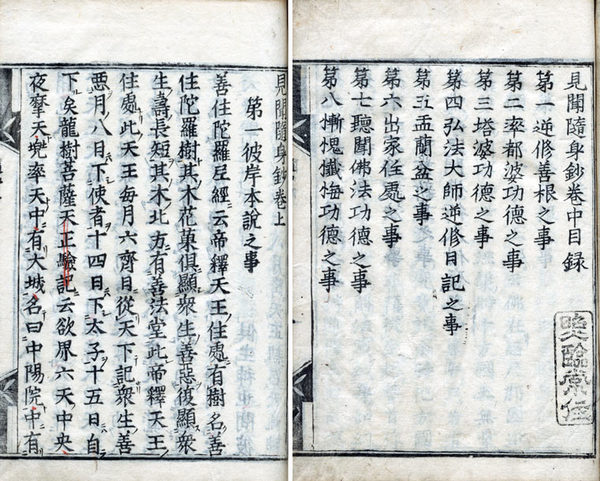 見聞隨身鈔卷中目録
第一逆修善根之事
第二率都婆功德之事
第三塔婆功德之事
第四弘法大師逆修日記之事
第五盂蘭盆之事
第六出家任處之事
第七聽聞佛法功德之事
第八慚愧懺悔功德之事
見聞隨身鈔卷上
第一彼岸本說之事
善住陀羅尼經云帝釋天王住處有樹名善
住陀羅樹其木花菓俱顯衆生善惡復顯衆
生壽長短其木北方有善法堂此帝釋天王
住處此天王每月六齊日從天下記衆生善
惡月八日下使者十四日下太子十五日自
下矣龍樹菩薩天正驗記云欲界六天中央
夜摩天兜率天中有大城名曰中陽院中有